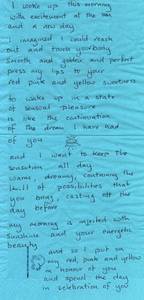 I woke up this morning
with excitement at the sun
and a new day
I imagined I could reach
out and touch your body
smooth and golden and perfect
press my lips to your
red pink and yellow sweetness
to wake up in a state
of sensual pleasure
is like the continuation
of the dream I have had
of you
and I want to keep the
sensation all day
warm, dreamy, containing the
thrill of possibilities that
you bring, casting off the
day before
my morning is injected with
sunshine and your energetic
beauty
and so I put on
my red, pink and yellow
in honour of you
and spend the day
in celebration of you